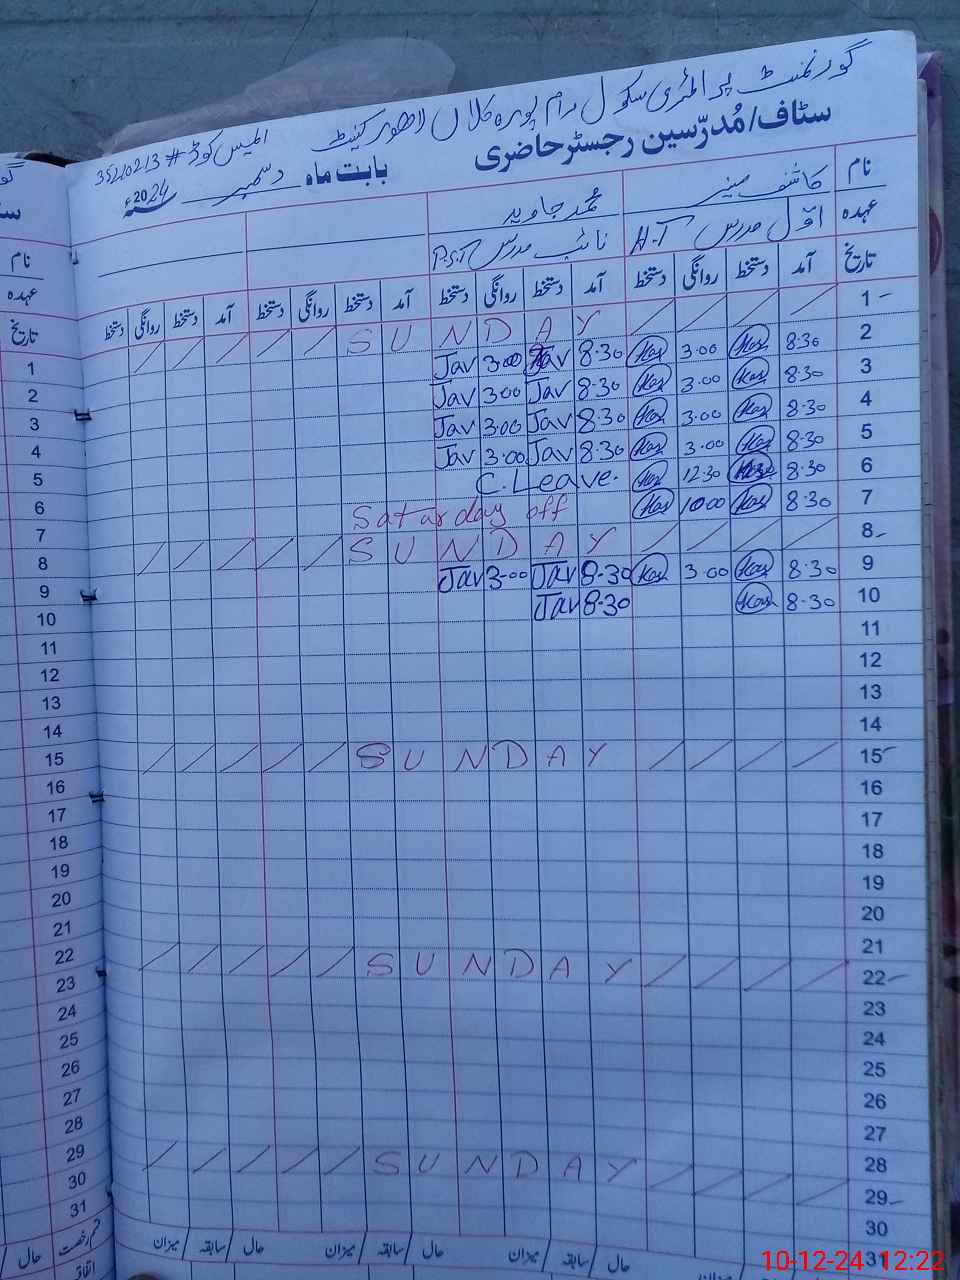 گورنمنٹ پرائمری سکول رام پورہ کلاں لاہور کینٹ
سٹاف/مُدرّسین رجسٹر حاضری
بابت ماہ دسمبر 2024ء
35210213 # کوڈ
نام کاشف منیر محمد جاوید
عہدہ اوّل مدرس H.T نائب مدرس P.S.T
تاریخ آمد دستخط روانگی دستخط آمد دستخط روانگی دستخط آمد دستخط روانگی دستخط آمد دستخط روانگی دستخط
1 SUNDAY
2 8.30 Kas 3.00 Kas 8.30 Jav 3.00 Jav
3 8.30 Kas 3.00 Kas 8.30 Jav 3.00 Jav
4 8.30 Kas 3.00 Kas 8.30 Jav 3.00 Jav
5 8.30 Kas 3.00 Kas 8.30 Jav 3.00 Jav
6 8.30 Kas 12.30 Kas C. Leave.
7 8.30 Kas 10.00 Kas Saturday off
8 SUNDAY
9 8.30 Kas 3.00 Kas 8.30 Jav 3.00 Jav
10 8.30 Kas 8.30 Jav
11
12
13
14
15 SUNDAY
16
17
18
19
20
21
22 SUNDAY
23
24
25
26
27
28
29 SUNDAY
30
31
حال سابقہ میزان حال سابقہ میزان حال سابقہ میزان
نام
عہدہ
تاریخ
1
2
3
4
5
6
7
8
9
10
11
12
13
14
15
16
17
18
19
20
21
22
23
24
25
26
27
28
29
30
31
قسم رخصت حال
10-12-24 12:22